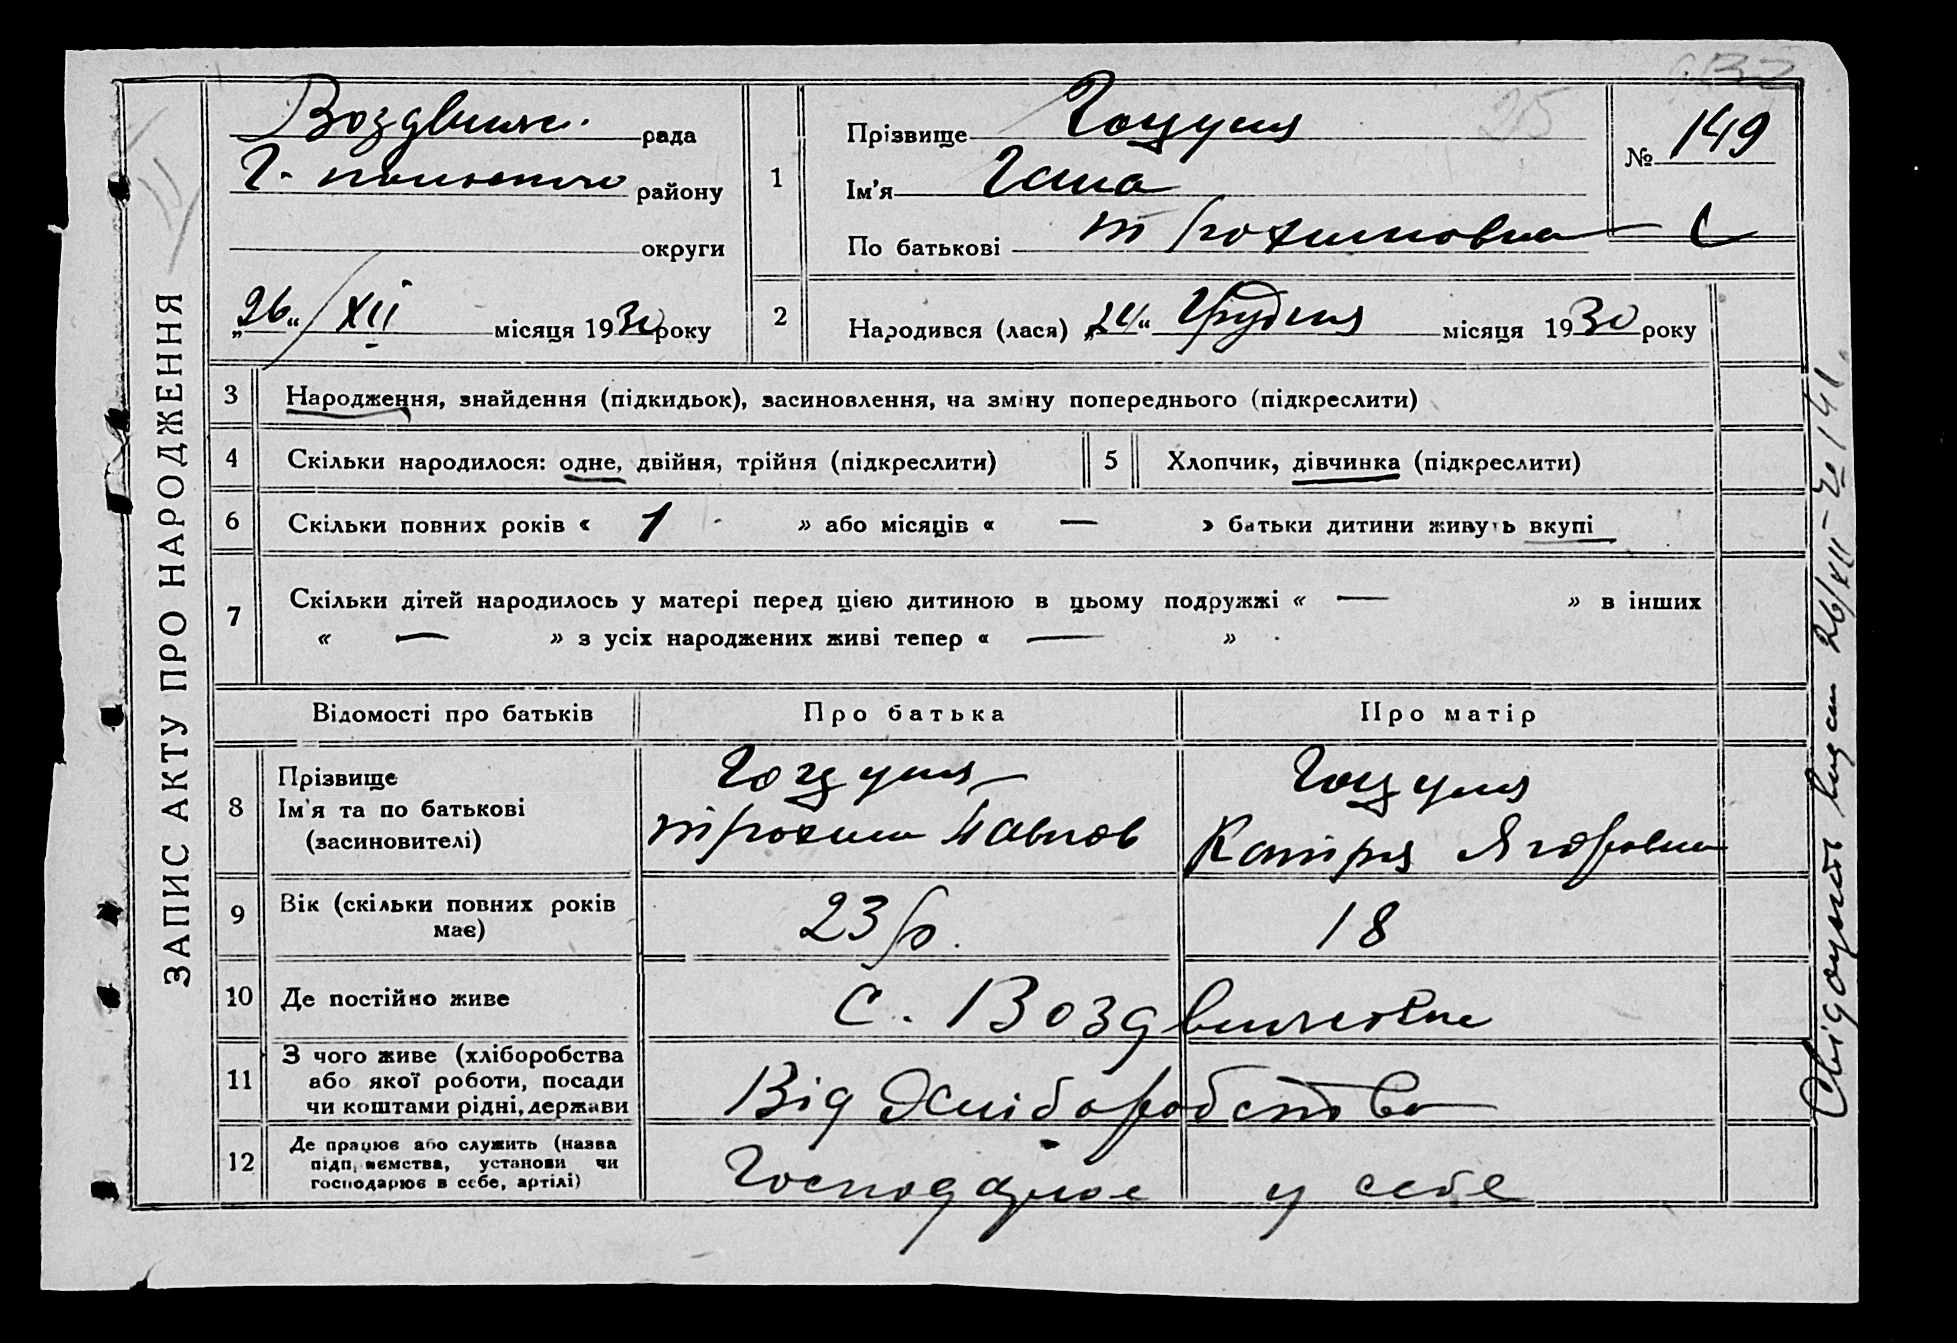 ЗАПИС АКТУ ПРО НАРОДЖЕННЯ
Воздвиж. рада
Г- району
округи
„26“ XII місяця 1930 року
1
Прізвище Гоцуля
Ім'я Гана
По батькові Трохимовна
№ 149
25
2
Народився (лася) „24“ Грудня місяця 1930 року
3 Народження, знайдення (підкидьок), засиновлення, на зміну попереднього (підкреслити)
4 Скільки народилося: одне, двійня, трійня (підкреслити)
5 Хлопчик, дівчинка (підкреслити)
6 Скільки повних років « 1 » або місяців « — » батьки дитини живуть вкупі
7 Скільки дітей народилось у матері перед цією дитиною в цьому подружжі « — » в інших
« — » з усіх народжених живі тепер « — »
Відомості про батьків Про батька Про матір
8 Прізвище
Ім'я та по батькові
(засиновителі)
Гоцуля
Трохим Павлов
Гоцуля
Катіря Ягоровна
9 Вік (скільки повних років
має)
23 р.
18
10 Де постійно живе
с. Воздвиженвке
11 З чого живе (хліборобства
або якої роботи, посади
чи коштами рідні, держави
Від Хліборобства
12 Де працює або служить (назва
підприємства, установи чи
господарює в себе, артілі)
Господарює у себе
Свідоцтво видан 26/XII-